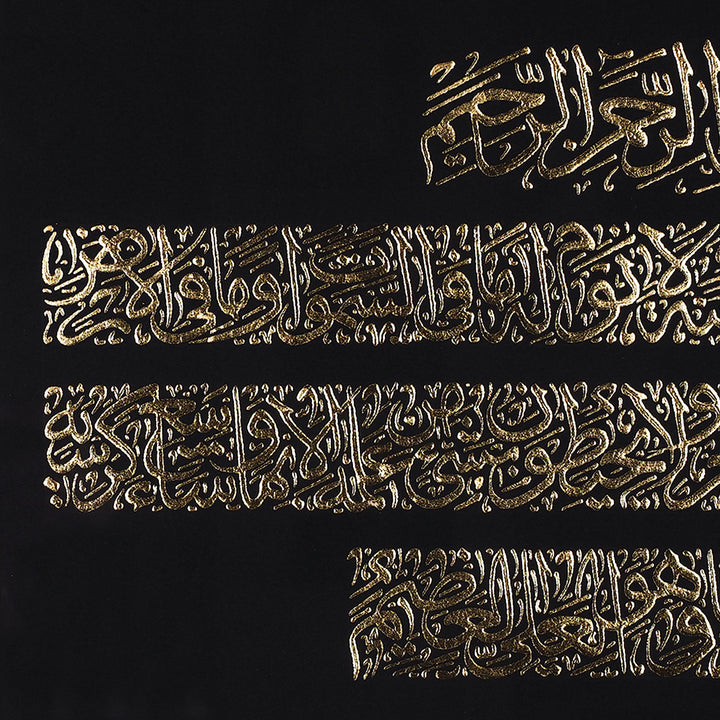 الرحمن الرحيم
ولا نوم له ما في السموات وما في الأرض
ولا يحيطون بشيء من علمه إلا بما شاء وسع كرسيه
وهو العلي العظيم